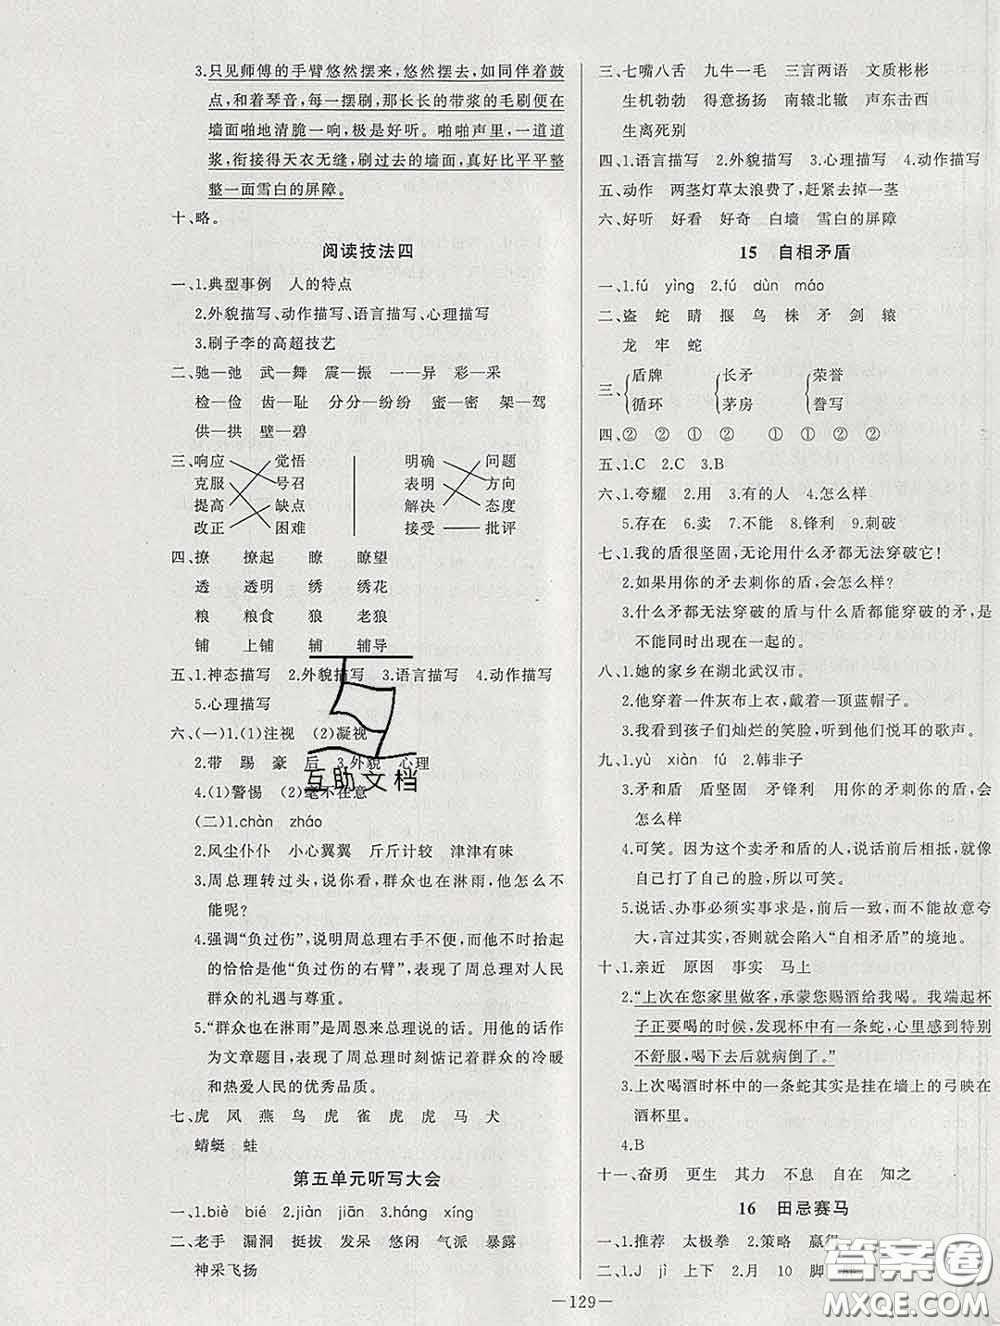 3.只见师傅的手臂悠然摆来,悠然摆去,如同伴着鼓
点,和着琴音,每一摆刷,那长长的带浆的毛刷便在
墙面啪地清脆一响,极是好听。啪啪声里,一道道
浆,衔接得天衣无缝,刷过去的墙面,真好比平平整
整一面雪白的屏障。
十、略。
阅读技法四
一、1.典型事例 人的特点
2.外貌描写、动作描写、语言描写、心理描写
3.刷子李的高超技艺
二、驰—弛 武—舞 震—振 一—异 彩—采
检—俭 齿—耻 分分—纷纷 蜜—密 架—驾
供—拱 壁—碧
三、响应 觉悟 明确 问题
克服 号召 表明 方向
提高 缺点 解决 态度
改正 困难 接受 批评
四、撩 撩起 瞭 瞭望
透 透明 绣 绣花
粮 粮食 狼 老狼
铺 上铺 辅 辅导
五、1.神态描写 2.外貌描写 3.语言描写 4.动作描写
5.心理描写
六、(一)1.(1)注视 (2)凝视
2.带 踢 豪 后 3.外貌 心理
4.(1)警惕 (2)毫不在意
互助文档
(二)1.chàn zháo
2.风尘仆仆 小心翼翼 斤斤计较 津津有味
3.周总理转过头,说你看,群众也在淋雨,他怎么不
能呢?
4.强调“负过伤”,说明周总理右手不便,而他不时抬起
的恰恰是他“负过伤的右臂”,表现了周总理对人民
群众的礼遇与尊重。
5.“群众也在淋雨”是周恩来总理说的话。用他的话作
为文章题目,表现了周总理时刻惦记着群众的冷暖
和热爱人民的优秀品质。
七、虎 凤 燕 鸟 虎 雀 虎 虎 马 犬
蜻蜓 蛙
第五单元听写大会
一、1.biè bié 2.jiàn jiān 3.háng xíng
二、老手 漏洞 挺拔 发呆 悠闲 气派 暴露
神采飞扬
三、七嘴八舌 九牛一毛 三言两语 文质彬彬
生机勃勃 得意扬扬 南辕北辙 声东击西
生离死别
四、1.语言描写 2.外貌描写 3.心理描写 4.动作描写
五、动作 两茎灯草太浪费了,赶紧去掉一茎
六、好听 好看 好奇 白墙 雪白的屏障
15 自相矛盾
一、1.fú yìng 2.fú dùn máo
二、盗 蛇 睛 揠 鸟 株 矛 剑 辕
龙 牢 蛇
三、盾牌 长矛 荣誉
循环 茅房 誊写
四、② ② ① ② ① ① ② ②
五、1.C 2.C 3.B
六、1.夸耀 2.用 3.有的人 4.怎么样
5.存在 6.卖 7.不能 8.锋利 9.刺破
七、1.我的盾很坚固,无论用什么矛都无法穿破它!
2.如果用你的矛去刺你的盾,会怎么样?
3.什么矛都无法穿破的盾与什么盾都能穿破的矛,是
不能同时出现在一起的。
八、1.她的家乡在湖北武汉市。
2.他穿着一件灰布上衣,戴着一顶蓝帽子。
3.我看到孩子们灿烂的笑脸,听到他们悦耳的歌声。
九、1.yù xiàn fú 2.韩非子
3.矛和盾 盾坚固 矛锋利 用你的矛刺你的盾,会
怎么样
4.可笑。因为这个卖矛和盾的人,说话前后相抵,就像
自己打了自己的脸,所以可笑。
5.说话、办事必须实事求是,前后一致,而不能故意夸
大,言过其实,否则就会陷入“自相矛盾”的境地。
十、1.亲近 原因 事实 马上
2.“上次在您家里做客,承蒙您赐酒给我喝。我端起杯
子正要喝的时候,发现杯中有一条蛇,心里感到特别
不舒服,喝下去后就病倒了。”
3.上次喝酒时杯中的一条蛇其实是挂在墙上的弓映在
酒杯里。
4.B
十一、奋勇 更生 其力 不息 自在 知之
16 田忌赛马
一、1.推荐 太极拳 2.策略 赢得
二、1.J jì 上下 2.月 10 脚
答案圈
MXQE.COM
—129—